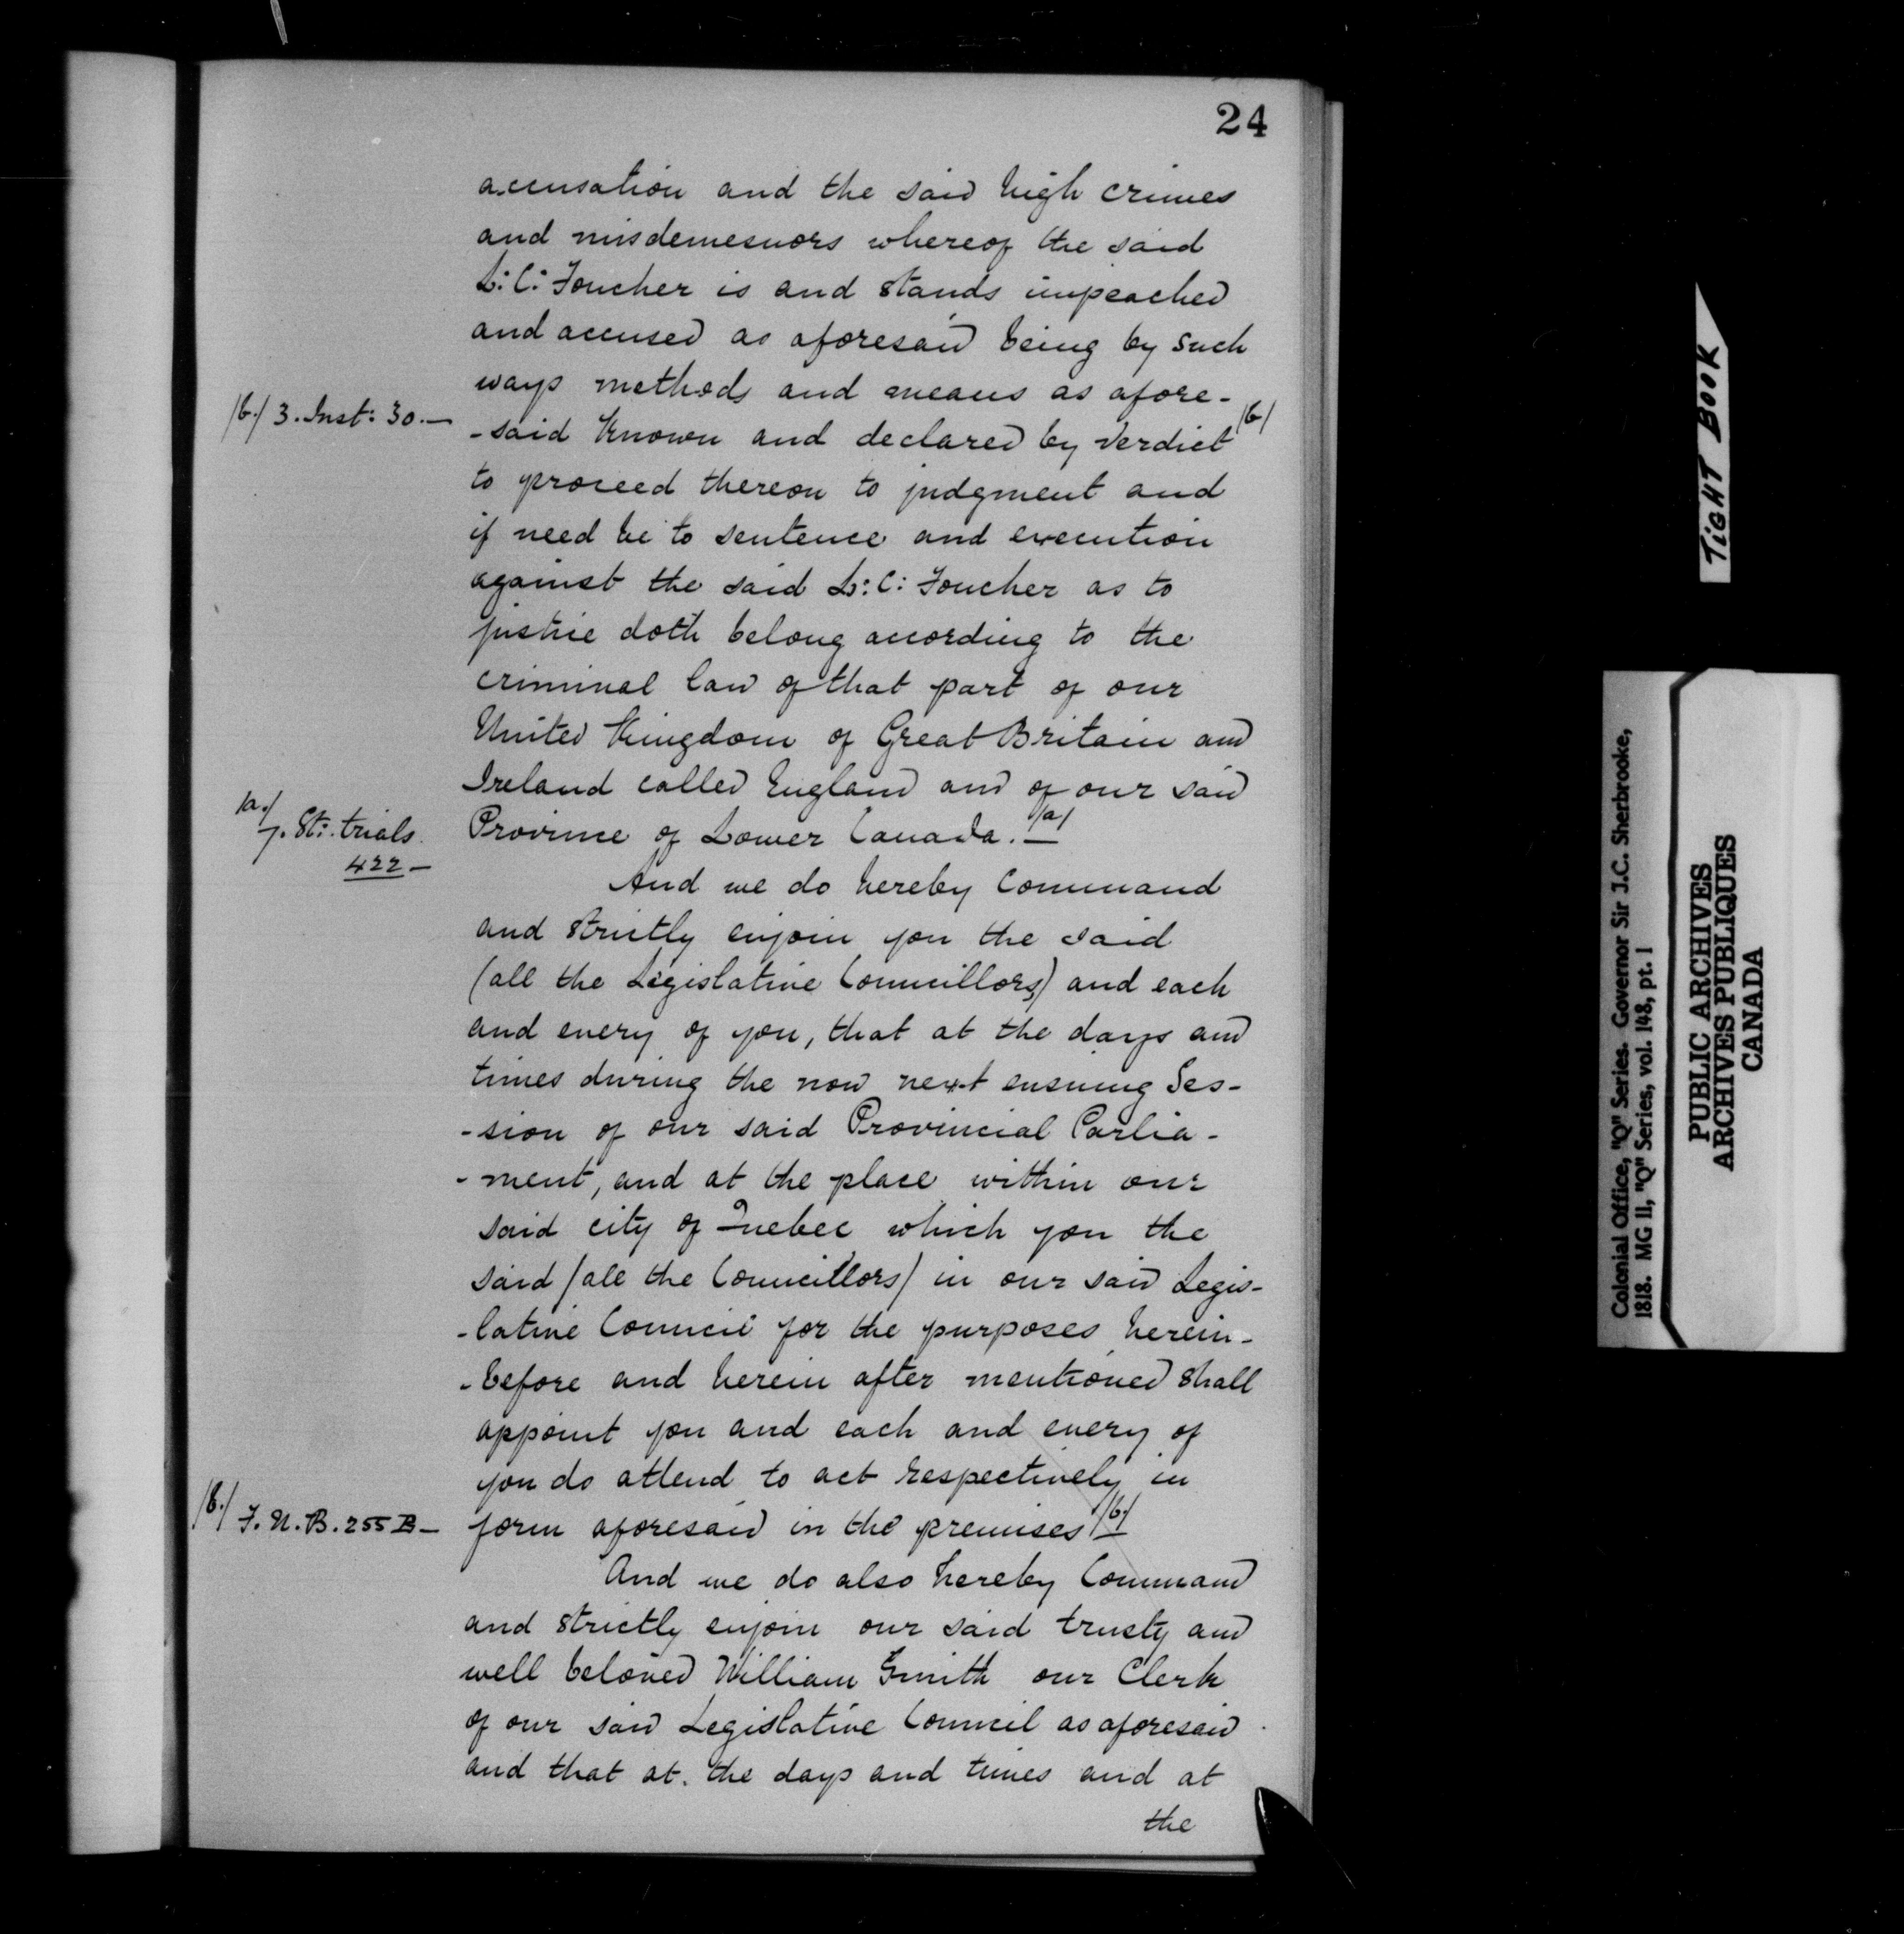 24
accusation and the said high crimes
and misdemesnors whereof the said
L: C: Foucher is and stands impeached
and accused as aforesaid being by such
ways methods and means as afore-
/b./ 3. Inst: 30.—
-said known and declared by verdict /b/
to proceed thereon to judgment and
if need be to sentence and execution
against the said L: C: Foucher as to
justice doth belong according to the
criminal law of that part of our
United Kingdom of Great Britain and
Ireland called England and of our said
/a./
7. St: trials.
422—
Province of Lower Canada. /a/—
And we do hereby Command
and strictly enjoin you the said
(all the Legislative Councillors) and each
and every of you, that at the days and
times during the now next ensuing Ses-
-sion of our said Provincial Parlia-
-ment, and at the place within our
said city of Quebec which you the
said /all the Councillors/ in our said Legis-
-lative Council for the purposes herein-
-before and herein after mentioned shall
appoint you and each and every of
you do attend to act respectively in
/b./ F. N. B. 255 B—
form aforesaid in the premises /b/
And we do also hereby Command
and strictly enjoin our said trusty and
well beloved William Smith our Clerk
of our said Legislative Council as aforesaid
and that at the days and times and at
the
TIGHT BOOK
Colonial Office, "Q" Series. Governor Sir J.C. Sherbrooke,
1818. MG 11, "Q" Series, vol. 148, pt. 1
PUBLIC ARCHIVES
ARCHIVES PUBLIQUES
CANADA